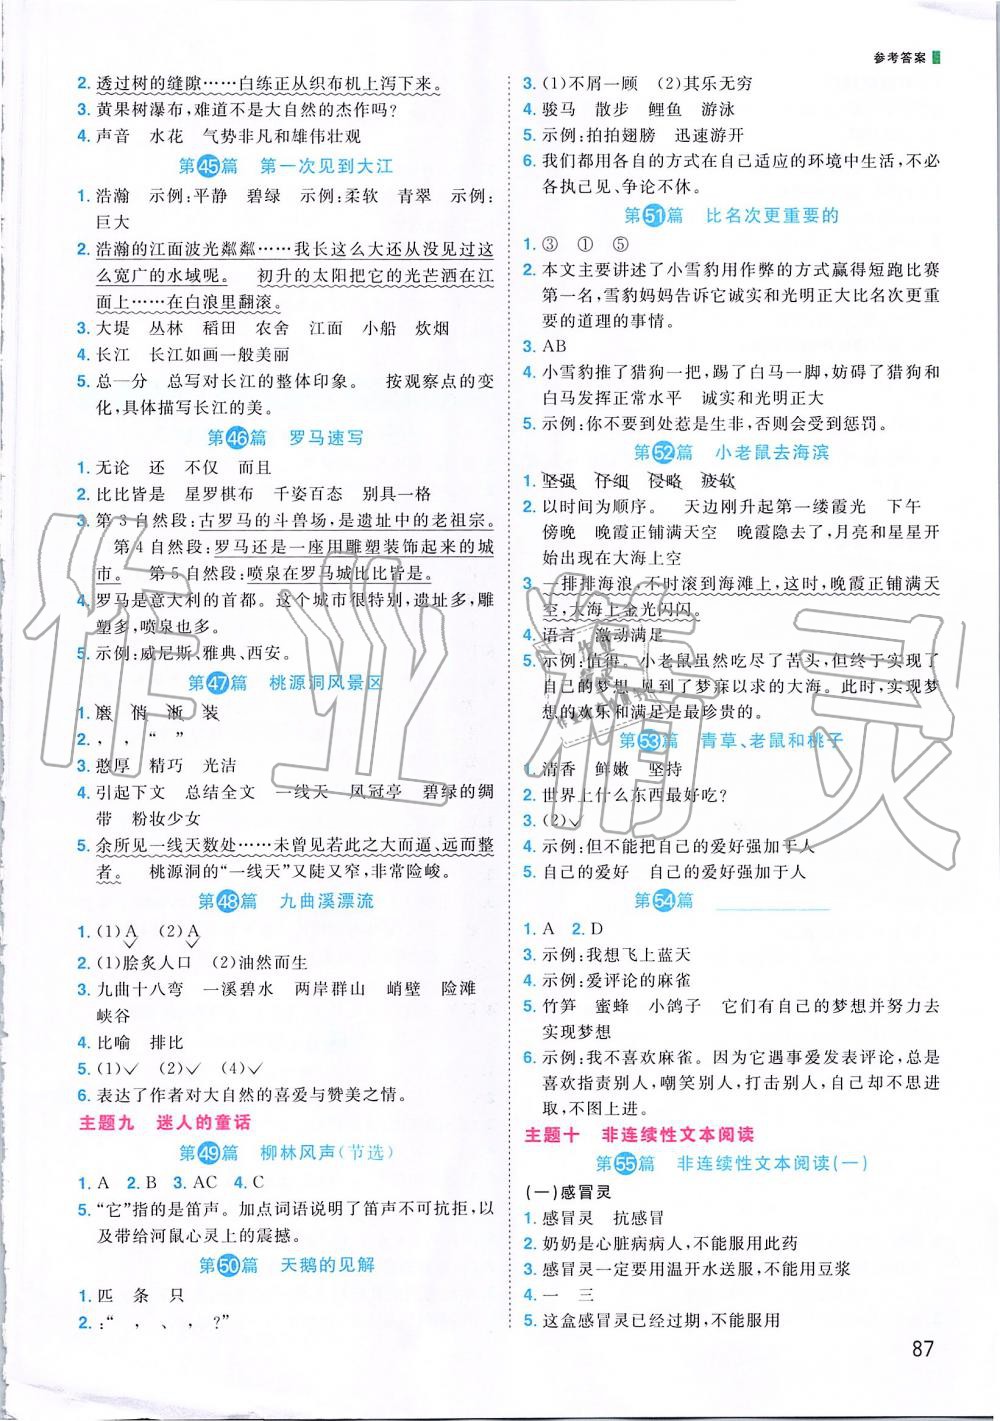 参考答案
2. 透过树的缝隙……白练正从织布机上泻下来。
3. 黄果树瀑布,难道不是大自然的杰作吗?
4. 声音 水花 气势非凡和雄伟壮观
第45篇 第一次见到大江
1. 浩瀚 示例:平静 碧绿 示例:柔软 青翠 示例:
巨大
2. 浩瀚的江面波光粼粼……我长这么大还从没见过这
么宽广的水域呢。 初升的太阳把它的光芒洒在江
面上……在白浪里翻滚。
3. 大堤 丛林 稻田 农舍 江面 小船 炊烟
4. 长江 长江如画一般美丽
5. 总—分 总写对长江的整体印象。 按观察点的变
化,具体描写长江的美。
第46篇 罗马速写
1. 无论 还 不仅 而且
2. 比比皆是 星罗棋布 千姿百态 别具一格
3. 第3自然段:古罗马的斗兽场,是遗址中的老祖宗。
第4自然段:罗马还是一座用雕塑装饰起来的城
市。 第5自然段:喷泉在罗马城比比皆是。
4. 罗马是意大利的首都。这个城市很特别,遗址多,雕
塑多,喷泉也多。
5. 示例:威尼斯、雅典、西安。
第47篇 桃源洞风景区
1. 磨 俏 渐 装
2. , , “ ”
3. 憨厚 精巧 光洁
4. 引起下文 总结全文 一线天 风冠亭 碧绿的绸
带 粉妆少女
5. 余所见一线天数处……未若此之大而逼、远而整
者。 桃源洞的“一线天”又陡又窄,非常险峻。
第48篇 九曲溪漂流
1. (1)A (2)A
2. (1)脍炙人口 (2)油然而生
3. 九曲十八弯 一溪碧水 两岸群山 峭壁 险滩
峡谷
4. 比喻 排比
5. (1)✓ (2)✓ (4)✓
6. 表达了作者对大自然的喜爱与赞美之情。
主题九 迷人的童话
第49篇 柳林风声(节选)
1. A 2. B 3. AC 4. C
5. “它”指的是笛声。加点词语说明了笛声不可抗拒,以
及带给河鼠心灵上的震撼。
第50篇 天鹅的见解
1. 匹 条 只
2. :“ , 、 , ?”
3. (1)不屑一顾 (2)其乐无穷
4. 骏马 散步 鲤鱼 游泳
5. 示例:拍拍翅膀 迅速游开
6. 我们都用各自的方式在自己适应的环境中生活,不必
各执己见、争论不休。
第51篇 比名次更重要的
1. ③ ① ⑤
2. 本文主要讲述了小雪豹用作弊的方式赢得短跑比赛
第一名,雪豹妈妈告诉它诚实和光明正大比名次更重
要的道理的事情。
3. AB
4. 小雪豹推了猎狗一把,踢了白马一脚,妨碍了猎狗和
白马发挥正常水平 诚实和光明正大
5. 示例:你不要到处惹是生非,否则会受到惩罚。
第52篇 小老鼠去海滨
1. 坚强 仔细 侵略 疲软
2. 以时间为顺序。 天边刚升起第一缕霞光 下午
傍晚 晚霞正铺满天空 晚霞隐去了,月亮和星星开
始出现在大海上空
3. 一排排海浪,不时滚到海滩上,这时,晚霞正铺满天
空,大海上金光闪闪。
4. 语言 激动满足
5. 示例:值得。小老鼠虽然吃尽了苦头,但它实现了自
己的梦想,见到了梦寐以求的大海。此时,实现梦
想的欢乐和满足是最珍贵的。
第53篇 青草、老鼠和桃子
1. 清香 鲜嫩 坚持
2. 世界上什么东西最好吃?
3. (2)✓
4. 示例:但不能把自己的爱好强加于人
5. 自己的爱好 自己的爱好强加于人
第54篇
1. A 2. D
3. 示例:我想飞上蓝天
4. 示例:爱评论的麻雀
5. 竹笋 蜜蜂 小鸽子 它们有自己的梦想并努力去
实现梦想
6. 示例:我不喜欢麻雀。因为它遇事爱发表评论,总是
喜欢指责别人,嘲笑别人,打击别人,自己却不思进
取,不图上进。
主题十 非连续性文本阅读
第55篇 非连续性文本阅读(一)
(一)感冒灵
1. 感冒灵 抗感冒
2. 奶奶是心脏病病人,不能服用此药
3. 感冒灵一定要用温开水送服,不能用豆浆
4. 一 三
5. 这盒感冒灵已经过期,不能服用
87
作业精灵